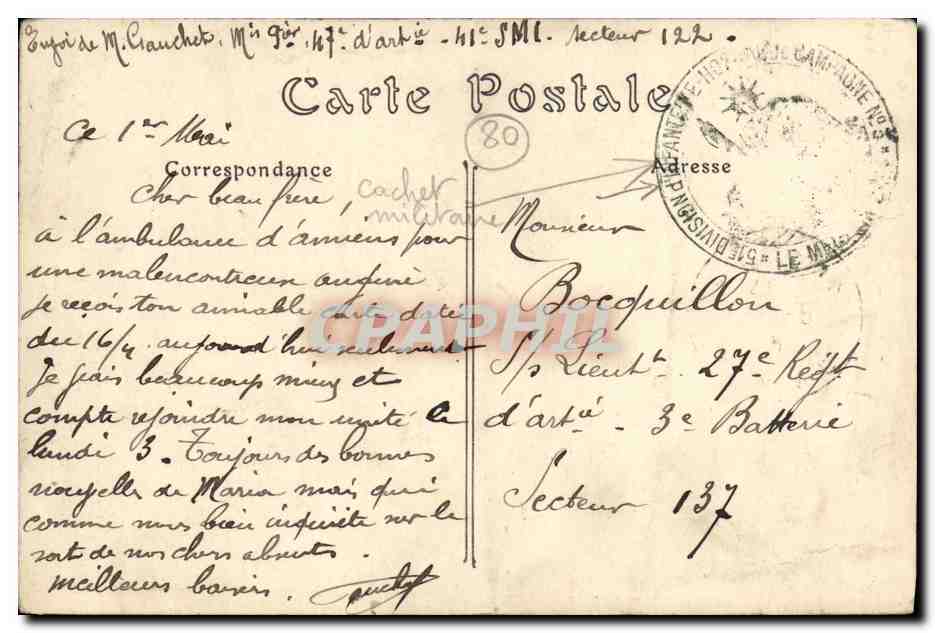 Envoi de M. Gauchet. Mis 47e d'artie - 41e SMI. secteur 122.
Carte Postale
80
ce 1er Mai
Correspondance
Adresse
cachet
militaire
51e DIVISION D'INFANTERIE CAMPAGNE No 3 * LE
Cher beau frère,
à l'ambulance d'amiens pour
une malencontreuse
je reçois ton aimable carte datée
du 16/4 aujourd'hui seulement
Je vais beaucoup mieux et
compte rejoindre mon unité le
lundi 3. Toujours des bonnes
nouvelles de Maria mais qui
comme nous bien inquiète sur le
sort de nos chers absents.
Meilleurs baisers. Gauchet
Monsieur
Bocquillon
s/s Lieutt 27e Régt
d'artie - 3e Batterie
Secteur 137
CPAPHIL